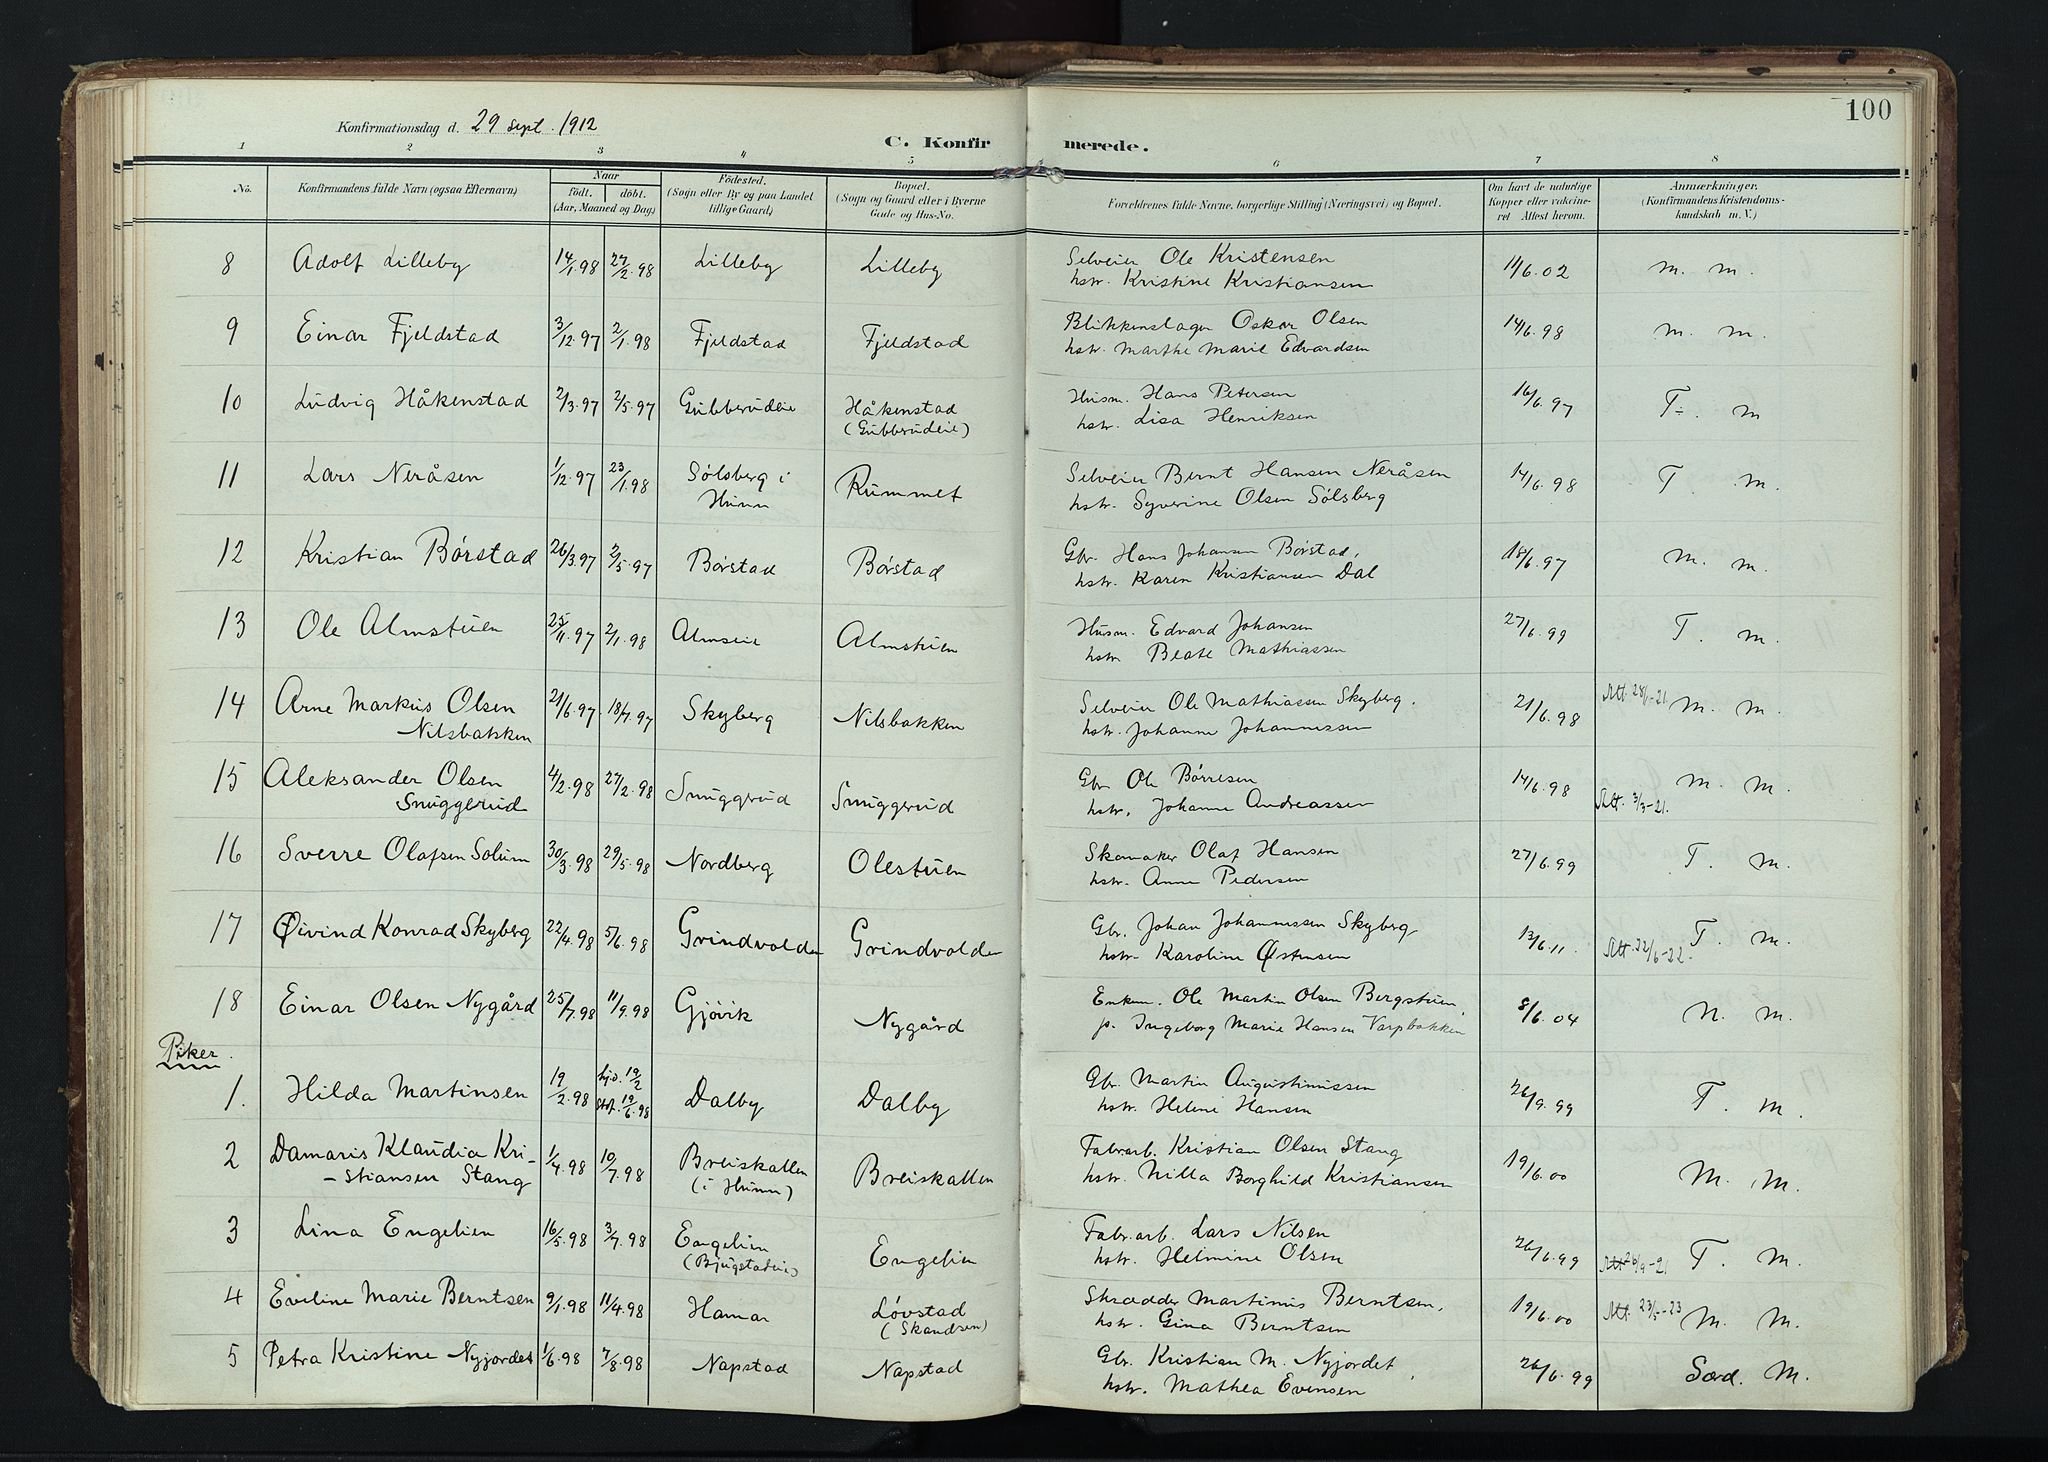 100
Konfirmationsdag d. 29 sept. 1912
C. Konfirmerede.
1 2 3 4 5 6 7 8
No. Konfirmandens fulde Navn (ogsaa Efternavn) Naar født. døbt. (Aar, Maaned og Dag.) Fødested. (Sogn eller By og paa Landet tillige Gaard.) Bopæl. (Sogn og Gaard eller i Byerne Gade og Hus-No. Forældrenes fulde Navne, borgerlige Stilling (Næringsvei) og Bopæl. Om havt de naturlige Kopper eller vaccineret Attest herom. Anmærkninger. (Konfirmandens Kristendomskundskab m. V.)
8 Adolf Lilleby 14/1.98 27/2.98 Lilleby Lilleby Selveier Ole Kristensen 11/6.02 m. m.
hstr. Kristine Kristiansen
9 Einar Fjeldstad 3/12.97 2/1.98 Fjeldstad Fjeldstad Blikkenslager Oskar Olsen 14/6.98 m. m.
hstr. Marthe Marie Edvardsen
10 Ludvig Håkenstad 2/3.97 2/5.97 Gubberudeie Håkenstad Husm. Hans Petersen 16/6.97 T÷. m
(Gubberudeie) hstr. Lisa Henriksen
11 Lars Neråsen 1/12.97 23/1.98 Sølsberg i Rummet Selveier Bernt Hansen Neråsen 14/6.98 T. m.
Hunn hstr. Syverine Olsen Sølsberg
12 Kristian Børstad 26/3.97 2/5.97 Børstad Børstad Gbr. Hans Johansen Børstad, 18/6.97 m. m.
hstr. Karen Kristiansen Dal
13 Ole Almstuen 25/11.97 2/1.98 Almseie Almstuen Husm. Edvard Johansen 27/6.99 T. m.
hstr Beate Mathiassen
14 Arne Markus Olsen 21/6.97 18/7.97 Skyberg Nilsbakken Selveier Ole Mathiassen Skyberg, 21/6.98 m. m.
Nilsbakken hstr. Johanne Johannessen
15 Aleksander Olsen 4/2.98 27/2.98 Snuggerud Snuggerud Gbr Ole Børresen 14/6.98 m. m.
Snuggerud hstr. Johanne Andreassen Att. 3/3-21.
16 Sverre Olafsen Solum 30/3.98 29/5.98 Nordberg Olestuen Skomaker Olaf Hansen 27/6.99 T. m.
hstr. Anne Pedersen
17 Øivind Konrad Skyberg 22/4.98 5/6.98 Grindvolden Grindvolden Gbr. Johan Johannessen Skyberg 13/6.11. T. m.
hstr. Karoline Østensen Att. 22/6-22.
18 Einar Olsen Nygård 25/7.98 11/9.98 Gjøvik Nygård Enkem. Ole Martin Olsen Bergstuen, 8/6.04 N. m.
p. Ingeborg Marie Hansen Varpbakken
Piker.
1. Hilda Martinsen 19/2.98 hjd. 19/2 Dalby Dalby Gbr. Martin Augustinussen 26/9.99 T. m.
stf. 19/6.98 hstr. Helene Hansen
2 Damaris Klaudia Kri- 1/4.98 10/7.98 Breiskallen Breiskallen Fabrarb. Kristian Olsen Stang 19/6.00 M. M.
-stiansen Stang (i Hunn) hstr. Nilla Borghild Kristiansen
3 Lina Engelien 16/5.98 3/7.98 Engelien Engelien Fabr.arb. Lars Nilsen 26/6.99 T. M.
(Bjugstadeie) hstr. Helmine Olsen Att 26/9-21
4 Eveline Marie Berntsen 9/1.98 11/4.98 Hamar Løvstad Skrædder Martinus Berntsen, 19/6.00 Att. 23/5-23 M. M.
(Skandsen) hstr. Gina Berntsen
5 Petra Kristine Nyjordet 1/6.98 7/8.98 Napstad Napstad Gbr. Kristian M. Nyjordet, 26/6.99 Særd. M.
hstr. Mathea Evensen